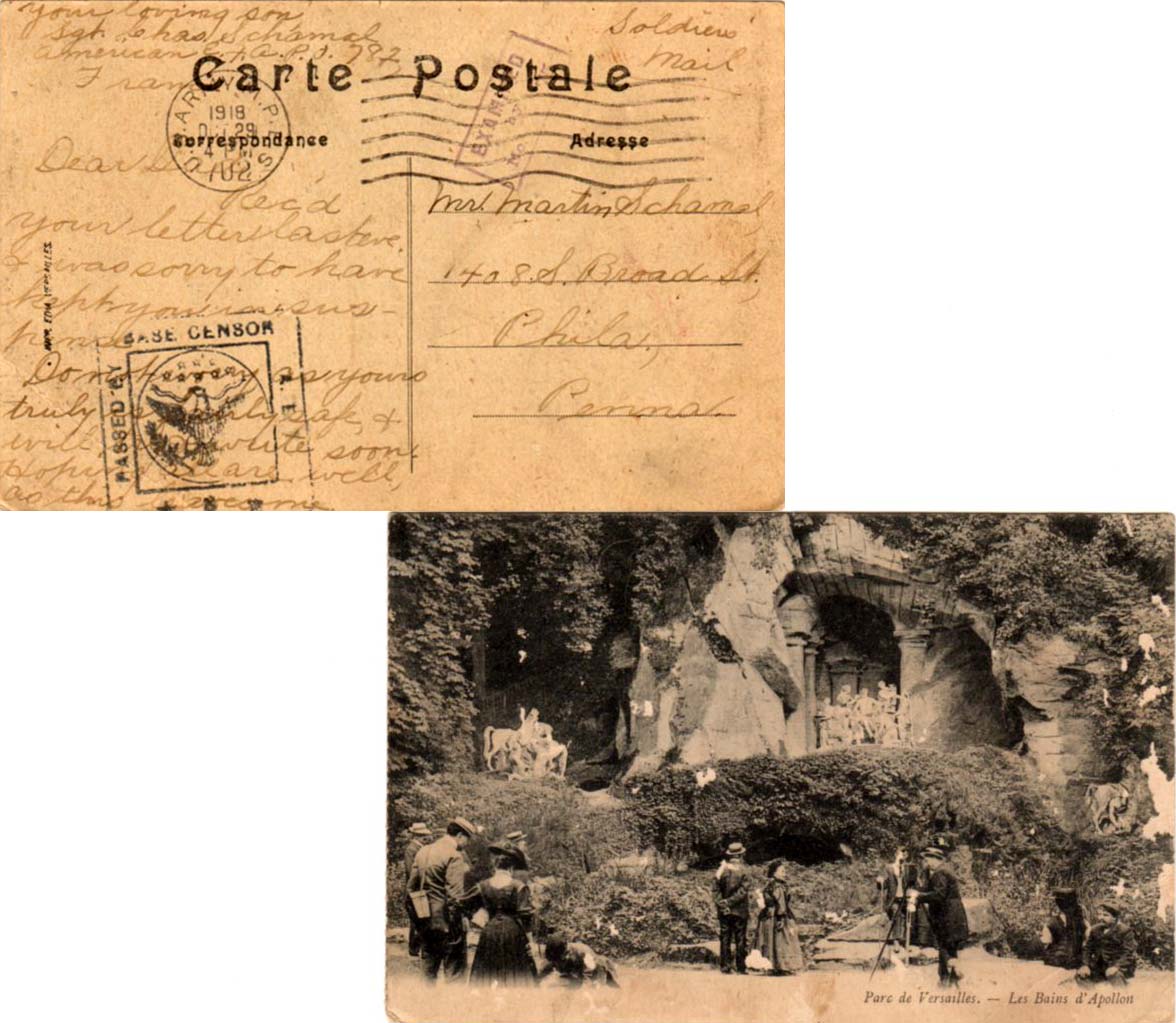 your loving son
Sgt. Chas Schamal
American E. F. A.P.O. 782
France
Soldiers
Mail
Carte Postale
Correspondance
Adresse
U.S. ARMY M.P.E.S.
1918
29
4 PM
702
EXAMINED
by
Dear Dad,
Rec'd
your letter last eve.
& was sorry to have
kept you in sus-
pense
Do not worry as yours
truly is safe, &
will write soon.
Hoping all are well,
as this leaves me
Mr. Martin Schamal,
1408 S. Broad St.,
Phila.,
Penna.
PASSED BY BASE CENSOR
Parc de Versailles. — Les Bains d'Apollon